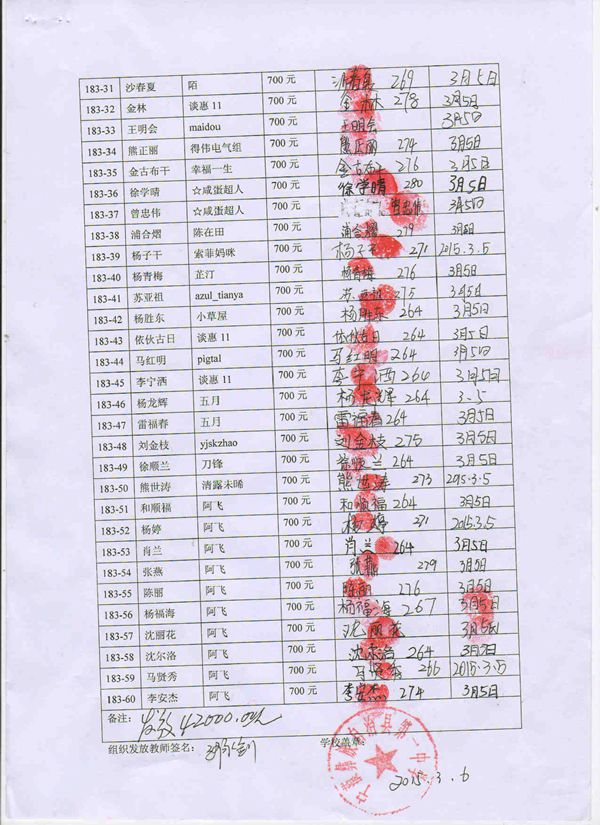 183-31 沙春夏 陌 700 元 沙春夏 269 3月5日
183-32 金林 谈惠 11 700 元 金林 278 3月5日
183-33 王明会 maidou 700 元 王明会 3月5日
183-34 熊正丽 得伟电气组 700 元 熊正丽 274 3月5日
183-35 金古布干 幸福一生 700 元 金古布干 276 3月5日
183-36 徐学晴 ☆咸蛋超人 700 元 徐学晴 280 3月5日
183-37 曾忠伟 ☆咸蛋超人 700 元 曾忠伟 3月5日
183-38 浦合熠 陈在田 700 元 浦合熠 279 3月5日
183-39 杨子干 索菲妈咪 700 元 杨子干 271 2015.3.5
183-40 杨青梅 芷汀 700 元 杨青梅 276 3月5日
183-41 苏亚祖 azul_tianya 700 元 苏亚祖 275 3月5日
183-42 杨胜东 小草屋 700 元 杨胜东 264 3月5日
183-43 依伙古日 谈惠 11 700 元 依伙古日 264 3月5日
183-44 马红明 pigtal 700 元 马红明 264 3月5日
183-45 李宁洒 谈惠 11 700 元 李宁洒 264 3月5日
183-46 杨龙辉 五月 700 元 杨龙辉 264 3.5
183-47 雷福春 五月 700 元 雷福春 264 3月5日
183-48 刘金枝 yjskzhao 700 元 刘金枝 275 3月5日
183-49 徐顺兰 刀锋 700 元 徐顺兰 264 3月5日
183-50 熊世涛 清露未晞 700 元 熊世涛 273 2015.3.5
183-51 和顺福 阿飞 700 元 和顺福 264 3月5日
183-52 杨婷 阿飞 700 元 杨婷 271 2015.3.5
183-53 肖兰 阿飞 700 元 肖兰 264 3月5日
183-54 张燕 阿飞 700 元 张燕 279 3月5日
183-55 陈丽 阿飞 700 元 陈丽 276 3月5日
183-56 杨福海 阿飞 700 元 杨福海 267 3月5日
183-57 沈丽花 阿飞 700 元 沈丽花 3月5日
183-58 沈尔洛 阿飞 700 元 沈尔洛 264 3月5日
183-59 马贤秀 阿飞 700 元 马贤秀 266 2015.3.5
183-60 李安杰 阿飞 700 元 李安杰 274 3月5日
备注: 发放42000.00元
组织发放教师签名: 学校盖章:
宁蒗彝族自治县第一中学
2015.3.6